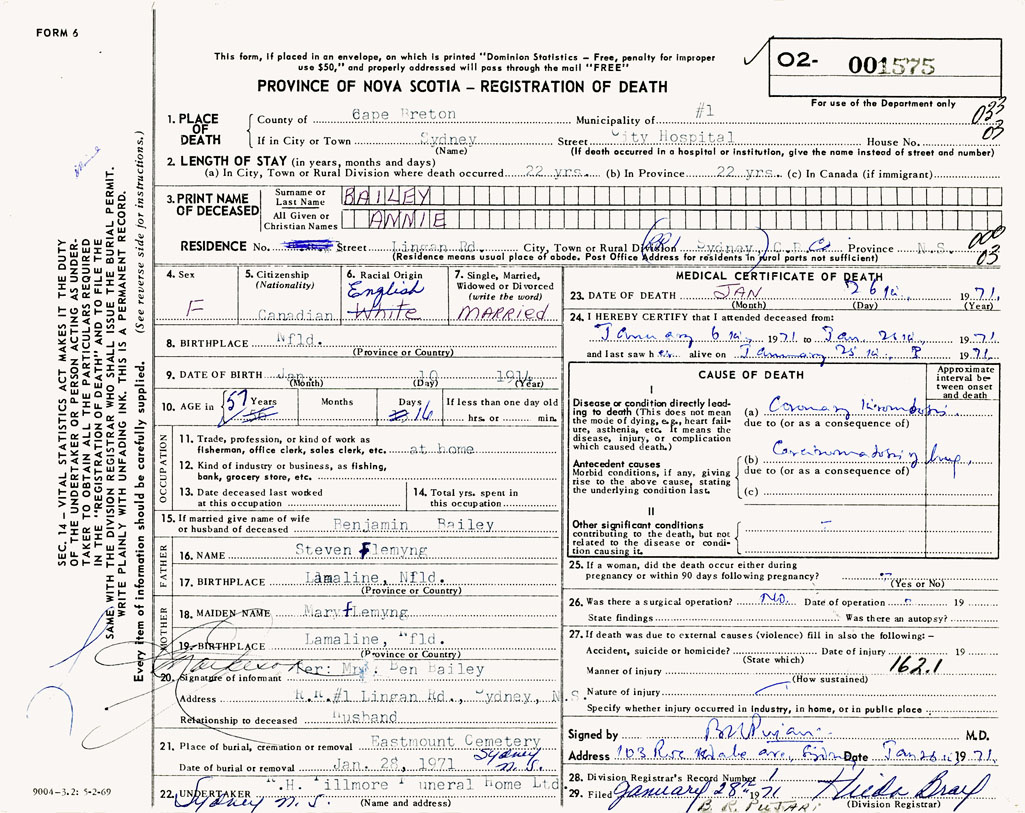 FORM 6
This form, if placed in an envelope, on which is printed "Dominion Statistics – Free, penalty for improper
use $50," and properly addressed will pass through the mail "FREE"
PROVINCE OF NOVA SCOTIA – REGISTRATION OF DEATH
O2- 001575
For use of the Department only
033
03
1. PLACE OF DEATH
County of Cape Breton Municipality of #1
If in City or Town Sydney Street City Hospital House No.
(Name) (If death occurred in a hospital or institution, give the name instead of street and number)
2. LENGTH OF STAY (in years, months and days)
(a) In City, Town or Rural Division where death occurred 22 yrs. (b) In Province 22 yrs. (c) In Canada (if immigrant)
3. PRINT NAME OF DECEASED
Surname or Last Name BAILEY
All Given or Christian Names ANNIE
RESIDENCE No. Street Lingan Rd. City, Town or Rural Division RR1 Sydney C.B. Co. Province N.S.
(Residence means usual place of abode. Post Office Address for residents in rural parts not sufficient)
000
03
4. Sex
F
5. Citizenship
(Nationality)
Canadian
6. Racial Origin
English
White
7. Single, Married,
Widowed or Divorced
(write the word)
MARRIED
8. BIRTHPLACE Nfld.
(Province or Country)
9. DATE OF BIRTH Jan. 10 1914
(Month) (Day) (Year)
10. AGE in 57 Years 56 Months Days 16 If less than one day old
hrs. or min.
OCCUPATION
11. Trade, profession, or kind of work as
fisherman, office clerk, sales clerk, etc. at home
12. Kind of industry or business, as fishing,
bank, grocery store, etc.
13. Date deceased last worked
at this occupation
14. Total yrs. spent in
this occupation
15. If married give name of wife
or husband of deceased Benjamin Bailey
FATHER
16. NAME Steven Flemyng
17. BIRTHPLACE Lamaline, Nfld.
(Province or Country)
MOTHER
18. MAIDEN NAME Mary Flemyng
19. BIRTHPLACE Lamaline, Nfld.
(Province or Country)
20. Signature of informant Per: Mr. Ben Bailey
Address R.R.#1 Lingan Rd., Sydney, N.S.
Relationship to deceased Husband
21. Place of burial, cremation or removal Eastmount Cemetery
Sydney N.S.
Date of burial or removal Jan. 28, 1971
22. UNDERTAKER W.H. Fillmore Funeral Home Ltd
Sydney N.S. (Name and address)
MEDICAL CERTIFICATE OF DEATH
23. DATE OF DEATH JAN 26th, 1971.
(Month) (Day) (Year)
24. I HEREBY CERTIFY that I attended deceased from:
January 6th, 1971 to Jan. 26th 1971
and last saw her alive on January 25th, 1971.
CAUSE OF DEATH
Approximate
interval be-
tween onset
and death
I
Disease or condition directly lead-
ing to death (This does not mean
the mode of dying, e.g., heart fail-
ure, asthenia, etc. It means the
disease, injury, or complication
which caused death.)
(a) Coronary thrombosis
due to (or as a consequence of)
Antecedent causes
Morbid conditions, if any, giving
rise to the above cause, stating
the underlying condition last.
(b) Carcinomatosis of lung.
due to (or as a consequence of)
(c)
II
Other significant conditions
contributing to the death, but not
related to the disease or condi-
tion causing it.
25. If a woman, did the death occur either during
pregnancy or within 90 days following pregnancy?
(Yes or No)
26. Was there a surgical operation? No. Date of operation 19
State findings Was there an autopsy?
27. If death was due to external causes (violence) fill in also the following:–
Accident, suicide or homicide? Date of injury 19
(State which)
Manner of injury 162.1
(How sustained)
Nature of injury
Specify whether injury occurred in industry, in home, or in public place
Signed by M.D.
Address 103 Date Jan 1971.
28. Division Registrar's Record Number 1
29. Filed January 28th 1971 Hilda Bray
B. R. PUJARI (Division Registrar)
SEC. 14 – VITAL STATISTICS ACT MAKES IT THE DUTY
OF THE UNDERTAKER OR PERSON ACTING AS UNDER-
TAKER TO OBTAIN ALL THE PARTICULARS REQUIRED
IN THE "REGISTRATION OF DEATH" AND TO FILE THE
SAME WITH THE DIVISION REGISTRAR WHO SHALL ISSUE THE BURIAL PERMIT.
WRITE PLAINLY WITH UNFADING INK. THIS IS A PERMANENT RECORD.
Every item of information should be carefully supplied. (See reverse side for instructions.)
9004-3.2: 5-2-69